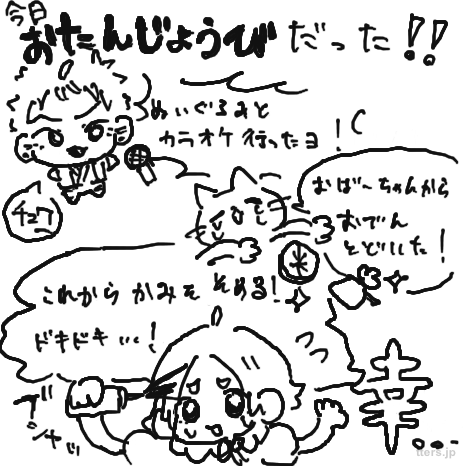 今日
おたんじょうびだった!!
ぬいぐるみと
カラオケ行ったヨ!
おばーちゃんから
おでん
とどいた!
米
これから かみを そめる!
ドキドキ…!
ブシャッ
幸…
tters.jp